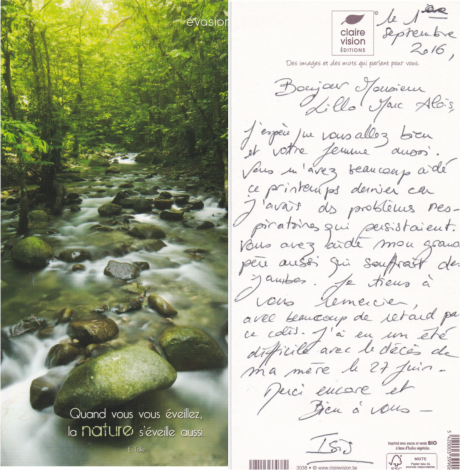 évasion
Quand vous vous éveillez,
la nature s'éveille aussi.
claire
vision
ÉDITIONS
Des images et des mots qui parlent pour vous.
le 1er
Septembre
2016,
Bonjour Monsieur
Lillo Marc Aloïs,
J'espère que vous allez bien
et votre femme aussi.
Vous m'avez beaucoup aidé
ce printemps dernier car
j'avais des problèmes res-
piratoires qui persistaient.
Vous avez aidé mon grand
père aussi qui souffrait des
jambes. Je tiens à
vous remercier,
avec beaucoup de retard par
ce colis. J'ai eu un été
difficile avec le décès de
ma mère le 27 juin.
Merci encore et
Bien à vous
Isis
FSC
MIXTE